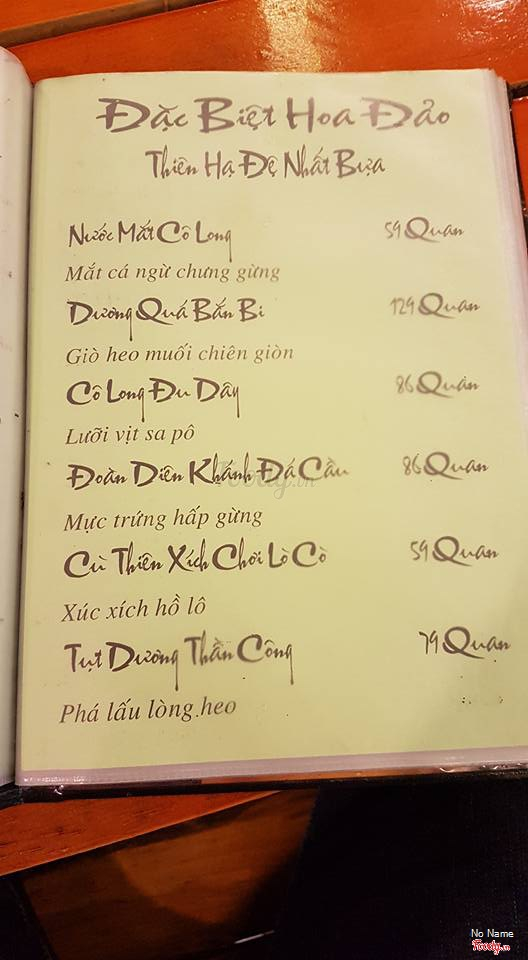 Đặc Biệt Hoa Đảo
Thiên Hạ Đệ Nhất Bựa
Nước Mắt Cô Long 59 Quan
Mắt cá ngừ chưng gừng
Dương Quá Bắn Bi 129 Quan
Giò heo muối chiên giòn
Cô Long Đu Dây 86 Quan
Lưỡi vịt sa pô
Đoàn Diên Khánh Đá Cầu 86 Quan
Foody.vn
Mực trứng hấp gừng
Cù Thiên Xích Chơi Lò Cò 59 Quan
Xúc xích hồ lô
Tụt Dương Thần Công 79 Quan
Phá lấu lòng heo
No Name
Foody.vn